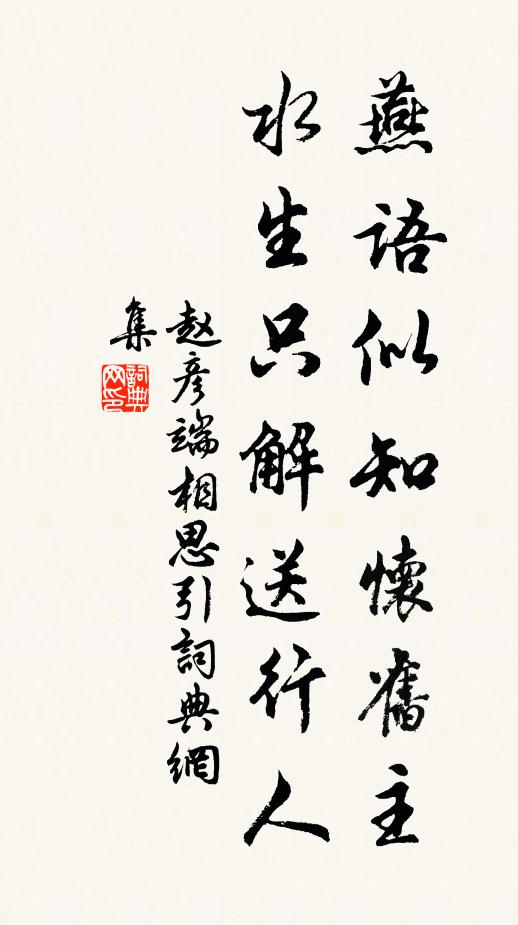 燕語似知懷舊主
水生只解送行人
赵彦端相思引詞典網
集
詞典
网印